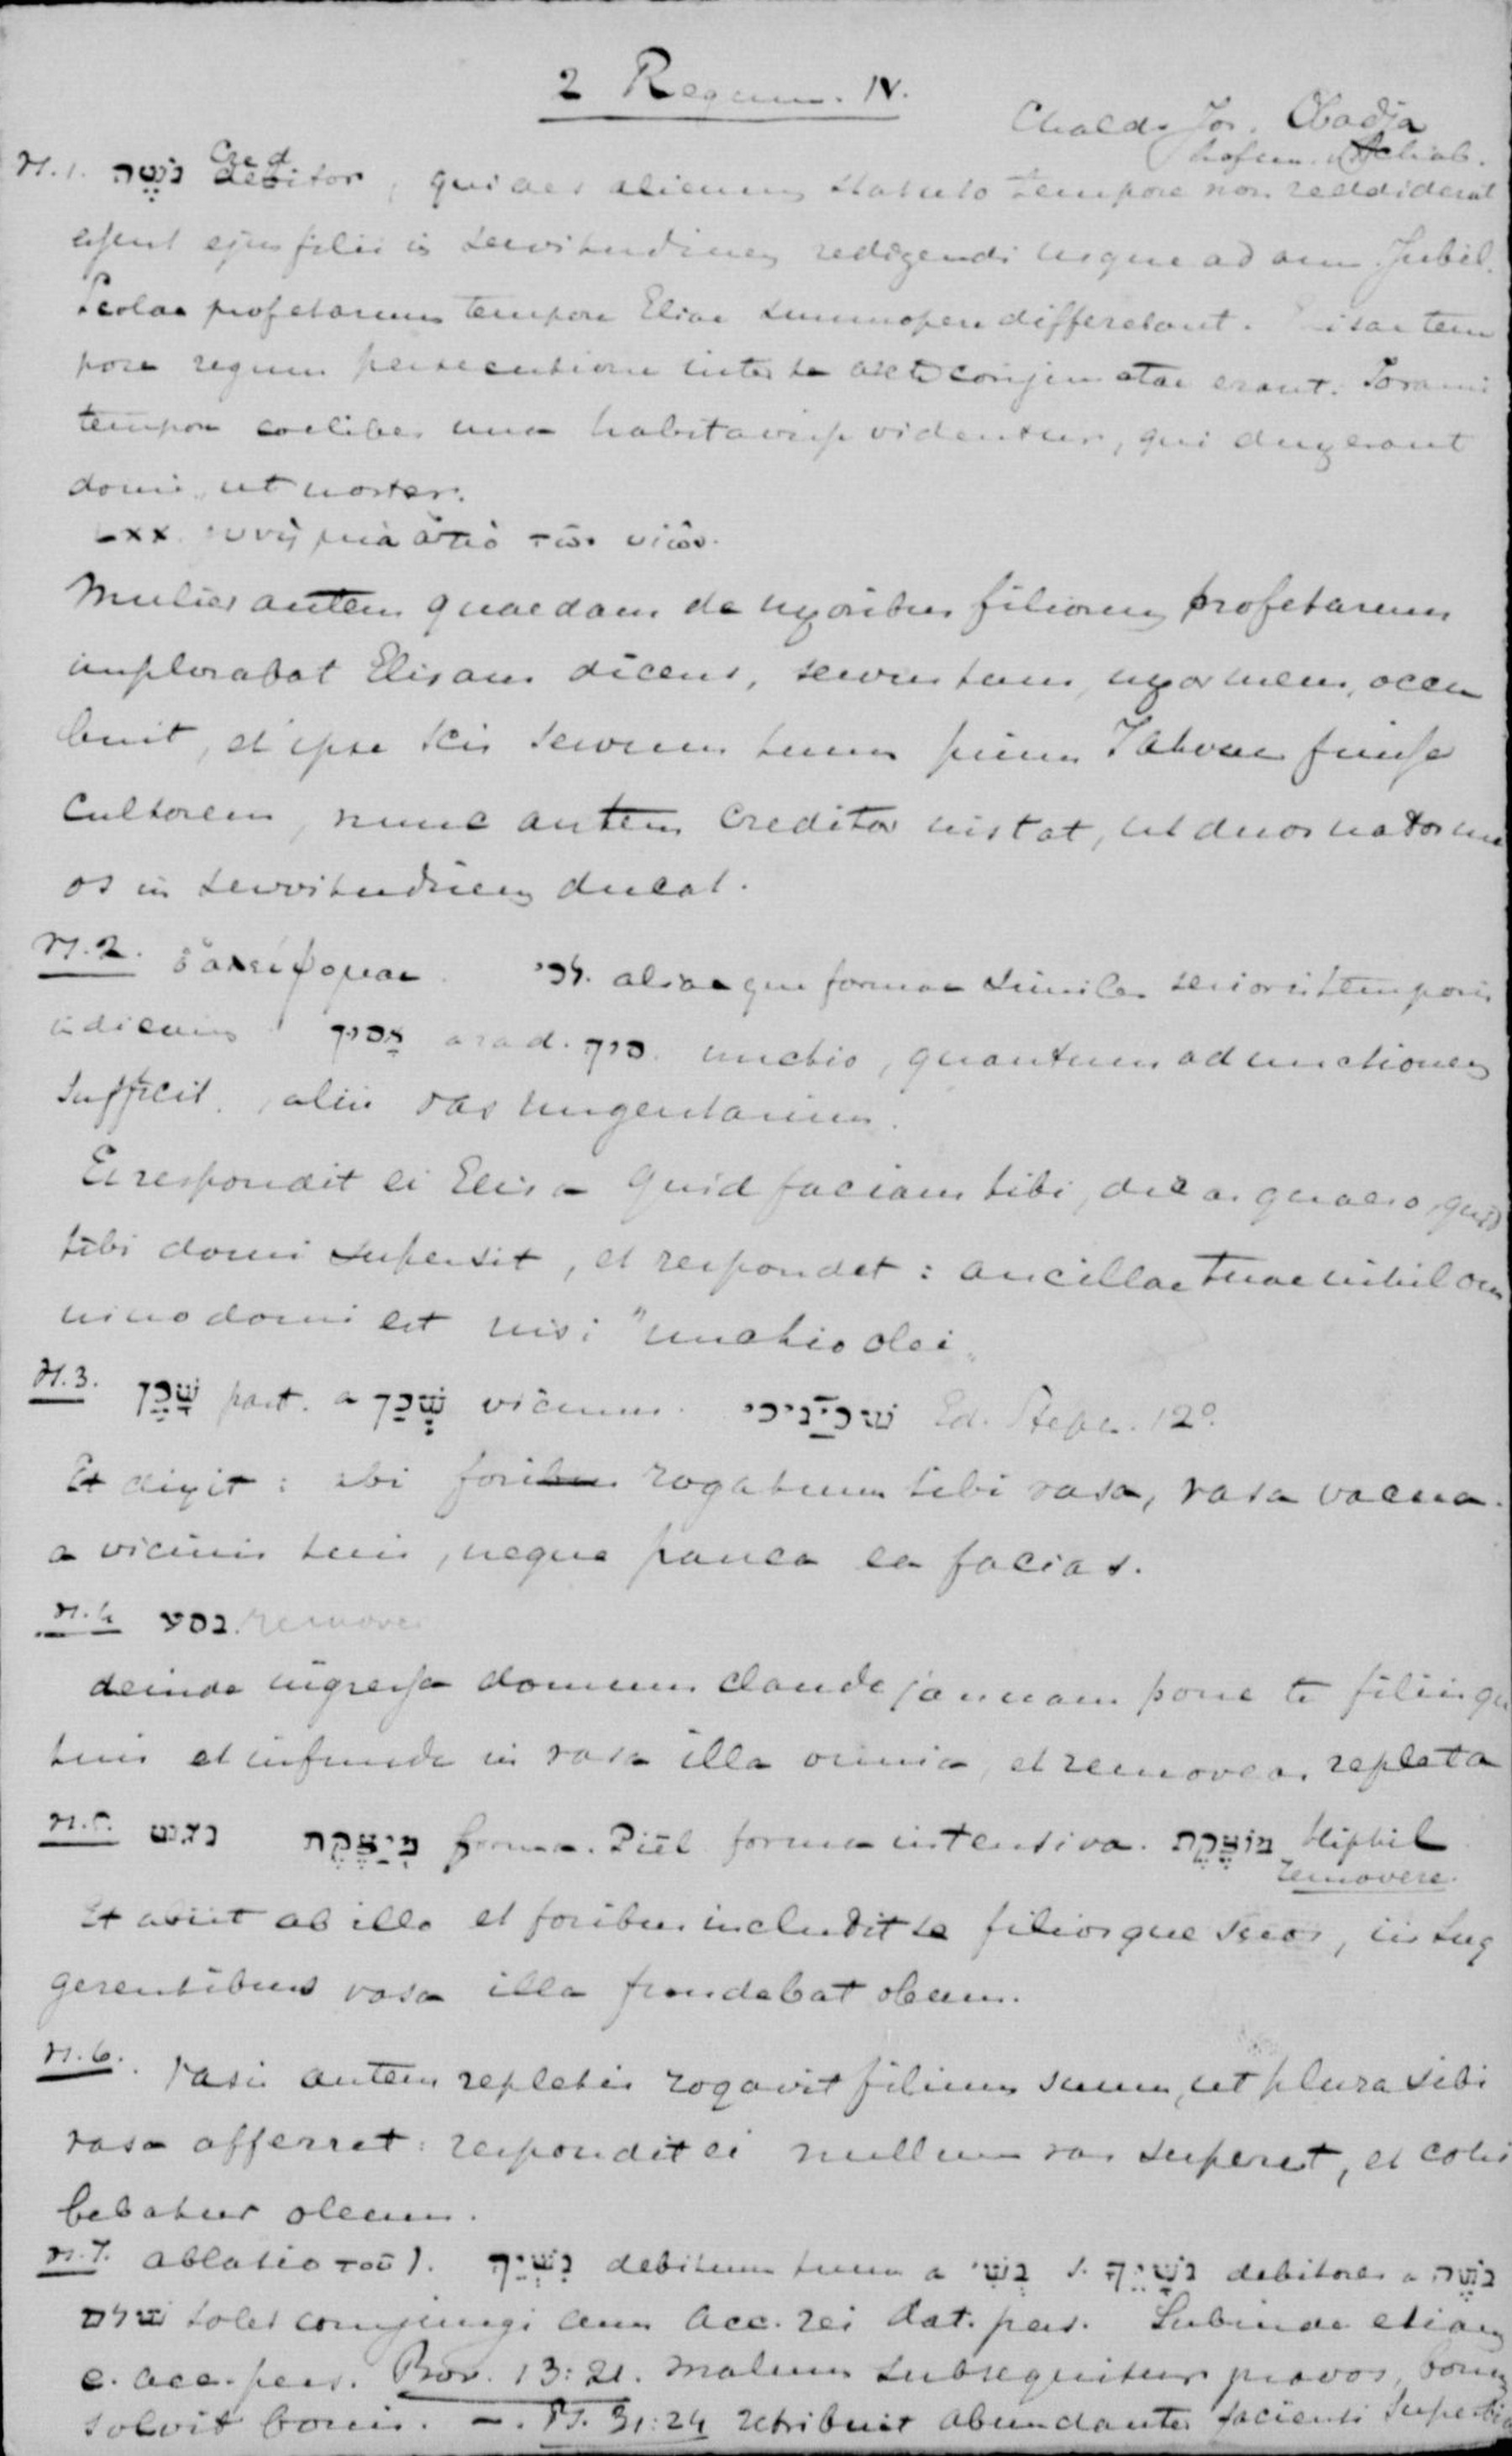 2 Regum. IV.
Chald. Jos. Obadja
N.1. נֹשֶׁה Cred debitor, qui aes alienum statuto tempore non reddiderat
essent ejus filii in servitudinem redigendi usque ad ann. Jubil.
Scolae profetarum tempore Eliae summopere differebant. Elisae tem
pore regum persecutione inter se arcte conjunctae erant. Jorami
tempore coelibes una habitavisse videntur, qui duxerant
domi, ut noster.
LXX. γυνὴ μία ἀπὸ τῶν υἱῶν.
Mulier autem quaedam de uxoribus filiorum profetarum
implorabat Elisam dicens, servus tuus, uxor meus, occu
buit, et ipse scis servum tuum pium Jahvae fuisse
cultorem, nunc autem creditor instat, ut duos natos me
os in servitudinem ducat.
N.2. לכי. aliaeque formae similes serioris temporis
indicium אסוך a rad. סוך. unctio, quantum ad unctionem
sufficit, alii vas ungentarium.
Et respondit ei Elisa quid faciam tibi, dicas quaeso, quid
tibi domi supersit, et respondet: ancillae tuae nihil om
nino domi est nisi "unctio olei„
N.3. שָׁכֵן part. a שָׁכַן vicinus. שכיניכי Ed. Steph. 12º.
Et dixit: abi foribus rogatum tibi vasa, vasa vacua
a vicinis tuis, neque pauca ea facias.
N.4 נסע. removere
deinde ingressa domum claude januam pone te filiisque
tuis et infunde in vasa illa omnia, et removeas repleta
N.5. נגש מְיַצֶּקֶת forma. Piël forma intensiva. מוֹצֶקֶת Hiphil
removere.
Et abiit ab illo et foribus includit se filiosque suos, iis sug
gerentibus vasa illa fundebat oleum.
N.6. Vasis autem repletis rogavit filium suum, ut plura sibi
vasa afferret: respondit ei nullum vas superest, et cohi
bebatur oleum.
N.7. ablatio του ι. נִשְׁיֵךְ debitum tuum a נְשִׁי s. נֹשַׁיִךְ debitores a נֹשֶׁה
שלם solet conjungi cum acc. rei dat. pers. Subinde etiam
c. acc. pers. Prov. 13:21. malum subsequitur pravos, bonum
solvit bonis. —. Ps. 31:24 retribuit abundanter facienti superbia